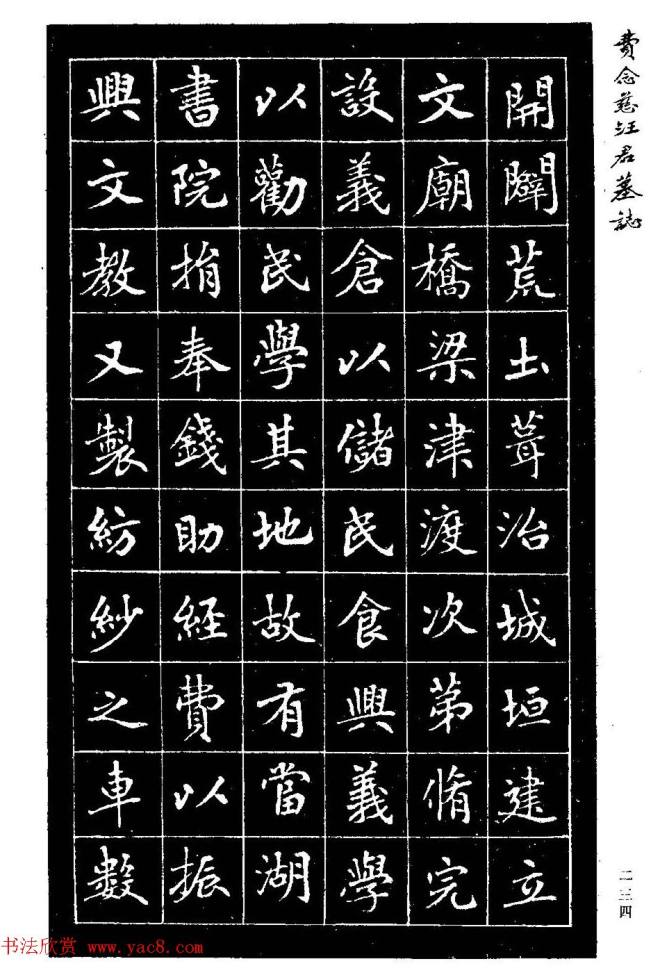 費念慈汪君墓誌
開闢荒土葺治城垣建立
文廟橋梁津渡次第脩完
設義倉以儲民食興義學
以勸民學其地故有當湖
書院捐奉錢助經費以振
興文教又製紡紗之車數
二三四
书法欣赏 www.yac8.com